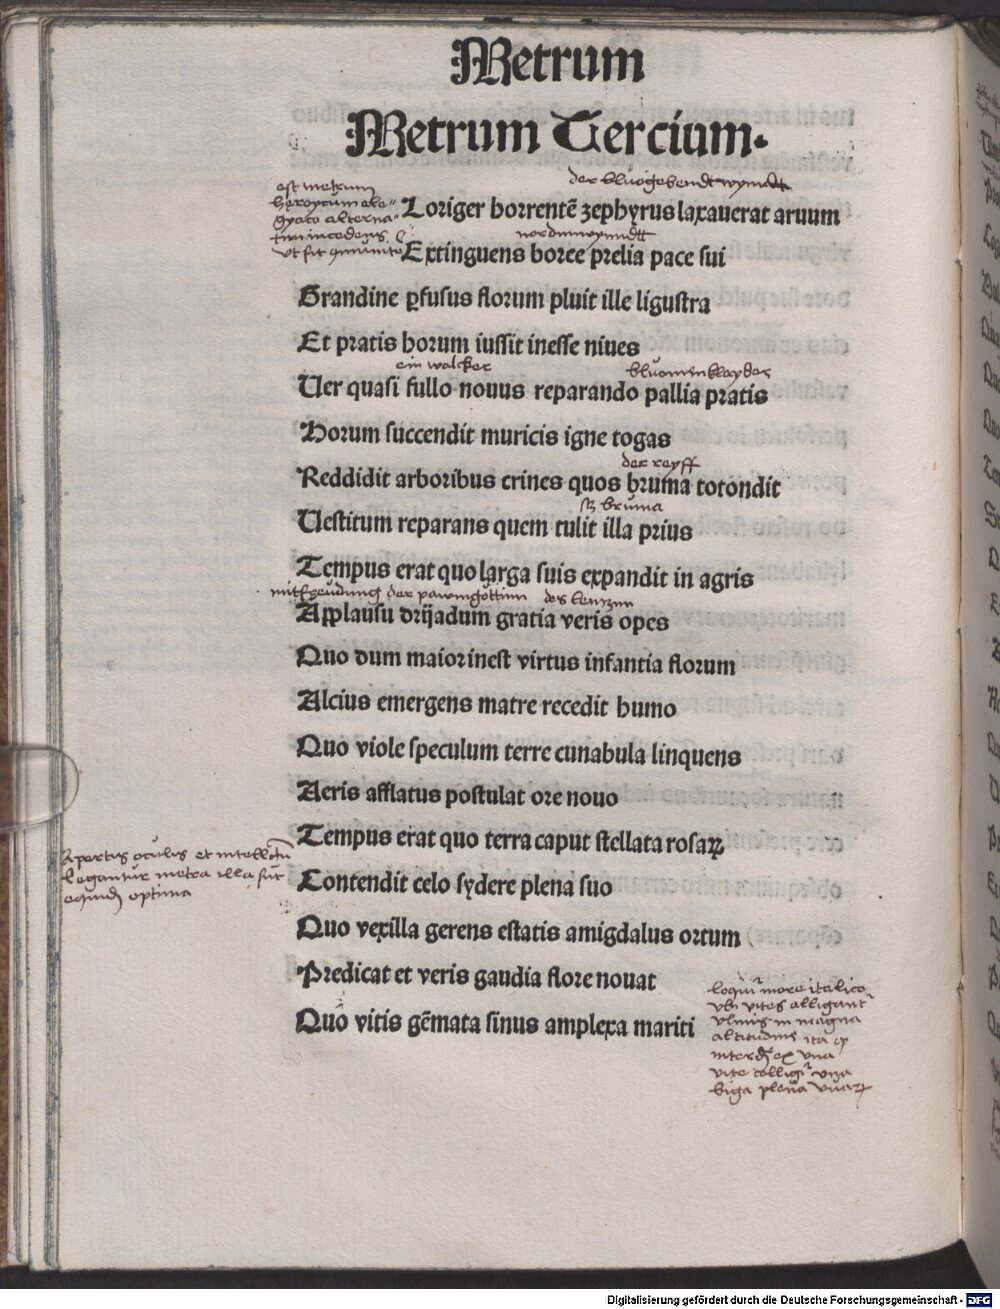 Metrum
Metrum Tercium.
der bluogebendt wynndt
est metrum
heroycum ele-
gyaco alterna-
tim incedens
vt fit
Loriger horrentē zephyrus laxauerat aruum
nordinwynndtt
Extinguens boree prelia pace sui
Grandine ꝑfusus florum pluit ille ligustra
Et pratis horum iussit inesse niues
ein walcker
bluomenkleyder
Uer quasi fullo nouus reparando pallia pratis
Horum succendit muricis igne togas
der reyff
Reddidit arboribus crines quos bruma totondit
bruma
Uestitum reparans quem tulit illa prius
Tempus erat quo larga suis expandit in agris
mitfreudung der pawmgöttinn
des lentzenn
Applausu drijadum gratia veris opes
Quo dum maior inest virtus infantia florum
Alcius emergens matre recedit humo
Quo viole speculum terre cunabula linquens
Aeris afflatus postulat ore nouo
Tempus erat quo terra caput stellata rosaꝝ
Apertis oculis et intellectu
legantur metra illa sūt
equidē optima
Contendit celo sydere plena suo
Quo vexilla gerens estatis amigdalus ortum
Predicat et veris gaudia flore nouat
Quo vitis gēmata sinus amplexa mariti
loquit more italico
vbi vites alligant
vlmis in magna
altitudine ita ꝙ
interdū ex vna
vite colligit vna
biga plena vuaꝝ
Digitalisierung gefördert durch die Deutsche Forschungsgemeinschaft - DFG